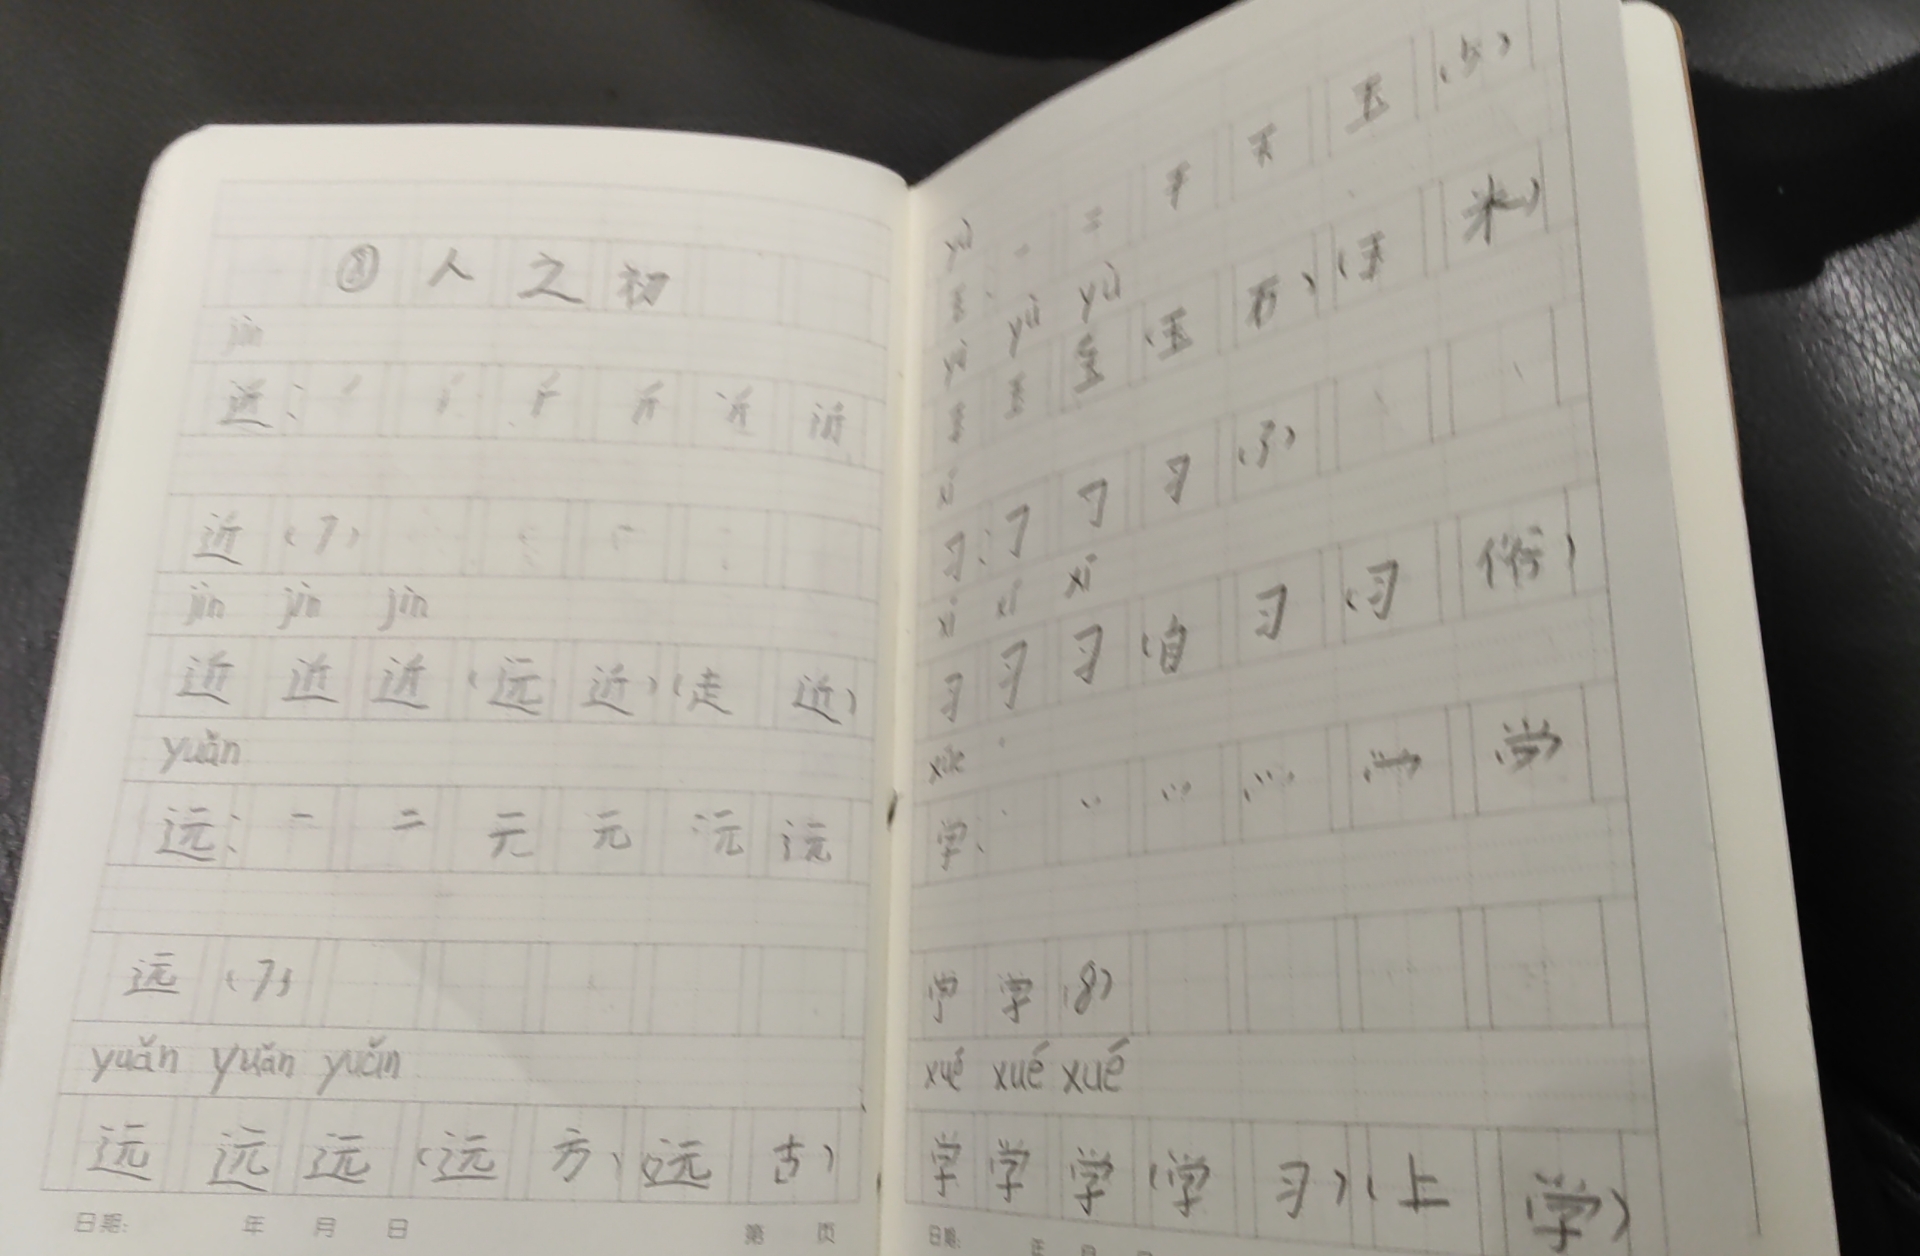 ⑧ 人之初
jìn
近：丿 𠂆 斤 斤 近 近
近（7）
jìn jìn jìn
近 近 近（远近）（走近）
yuǎn
远：一 二 元 元 远 远
远（7）
yuǎn yuǎn yuǎn
远 远 远（远方）（远古）
日期： 年 月 日 第 页
yù
玉：一 二 干 王 玉（5）
yù yù yù
玉 玉 玉（玉石）（玉米）
xí
习：㇆ 习 习（3）
xí xí xí
习 习 习（自习）（习俗）
xué
学：
学 学（8）
xué xué xué
学 学 学（学习）（上学）
日期： 年 月 日